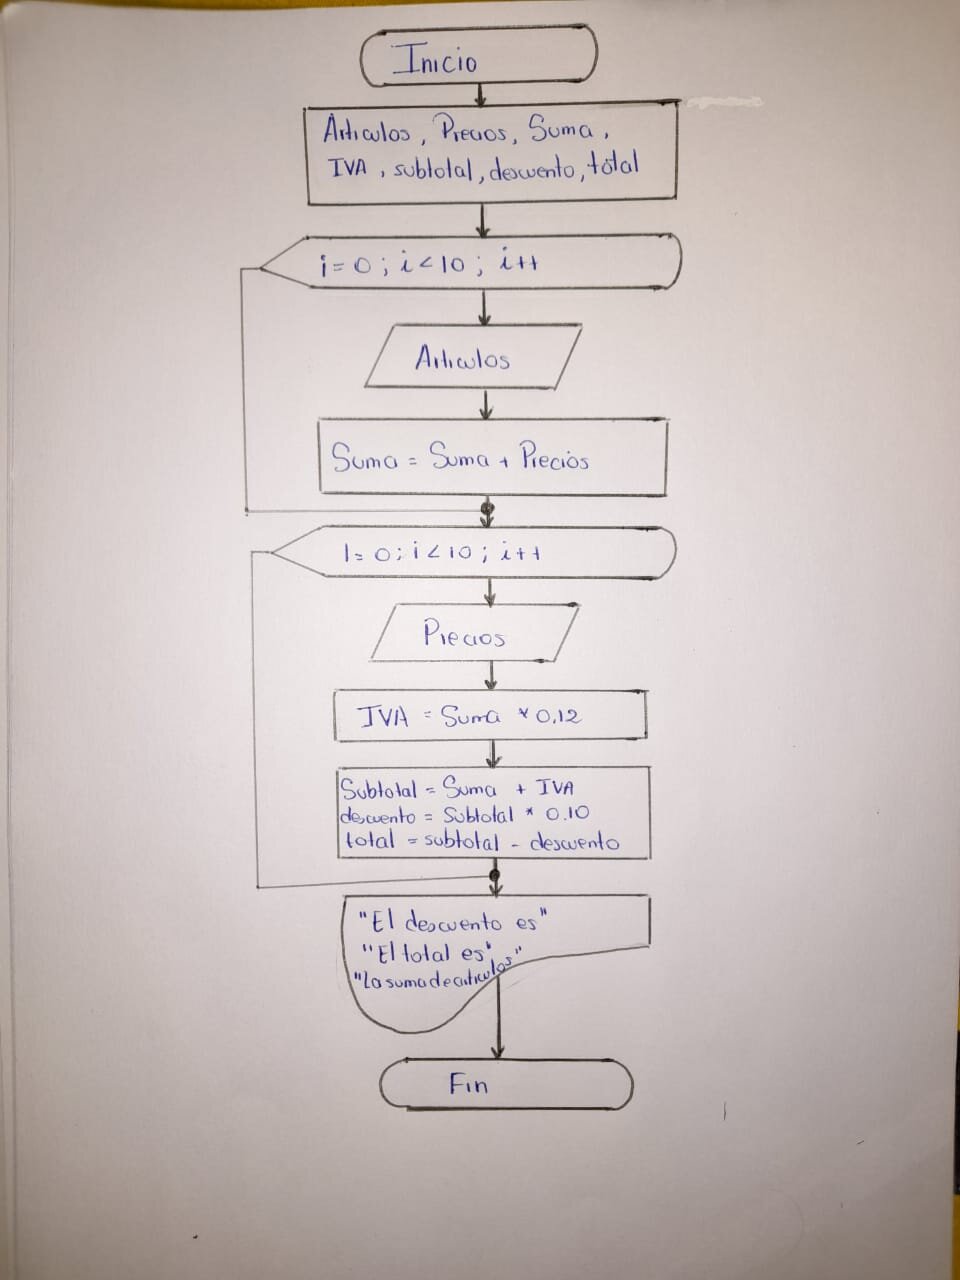 Inicio
Articulos, Precios, Suma,
IVA, subtotal, descuento, total
i = 0 ; i < 10 ; i++
Articulos
Suma = Suma + Precios
I = 0 ; i < 10 ; i++
Precios
IVA = Suma * 0.12
Subtotal = Suma + IVA
descuento = Subtotal * 0.10
total = subtotal - descuento
"El descuento es"
"El total es"
"La suma de articulos"
Fin